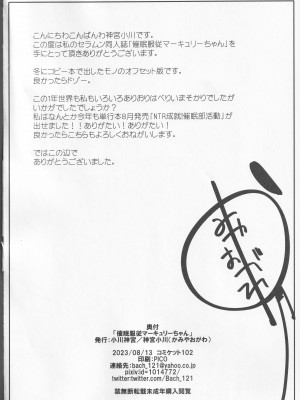 こんにちわこんばんわ神宮小川です。
この度は私のセラムン同人誌「催眠服従マーキュリーちゃん」を
手にとって頂きありがとうございます。
冬にコピー本で出したモノのオフセット版です。
良かったらドゾー。
この1年世界も私もいろいろありおりはべりいまそかりでしたが
いかがでしたでしょうか？
私はなんとか今年も単行本8月発売「NTR成就!催眠部活動」が
出せました！！ありがたい！ありがたい！
良かったらこちらもよろしくおねがいします。
ではこの辺で
ありがとうございました。
奥付
「催眠服従マーキュリーちゃん」
発行：小川神宮／神宮小川(かみやおがわ)
2023/08/13 コミケット102
印刷：PICO
連絡先：bach_121@yahoo.co.jp
pixiv:id=1014772/
twitter:twitter.com/Bach_121
禁無断転載未成年購入閲覧